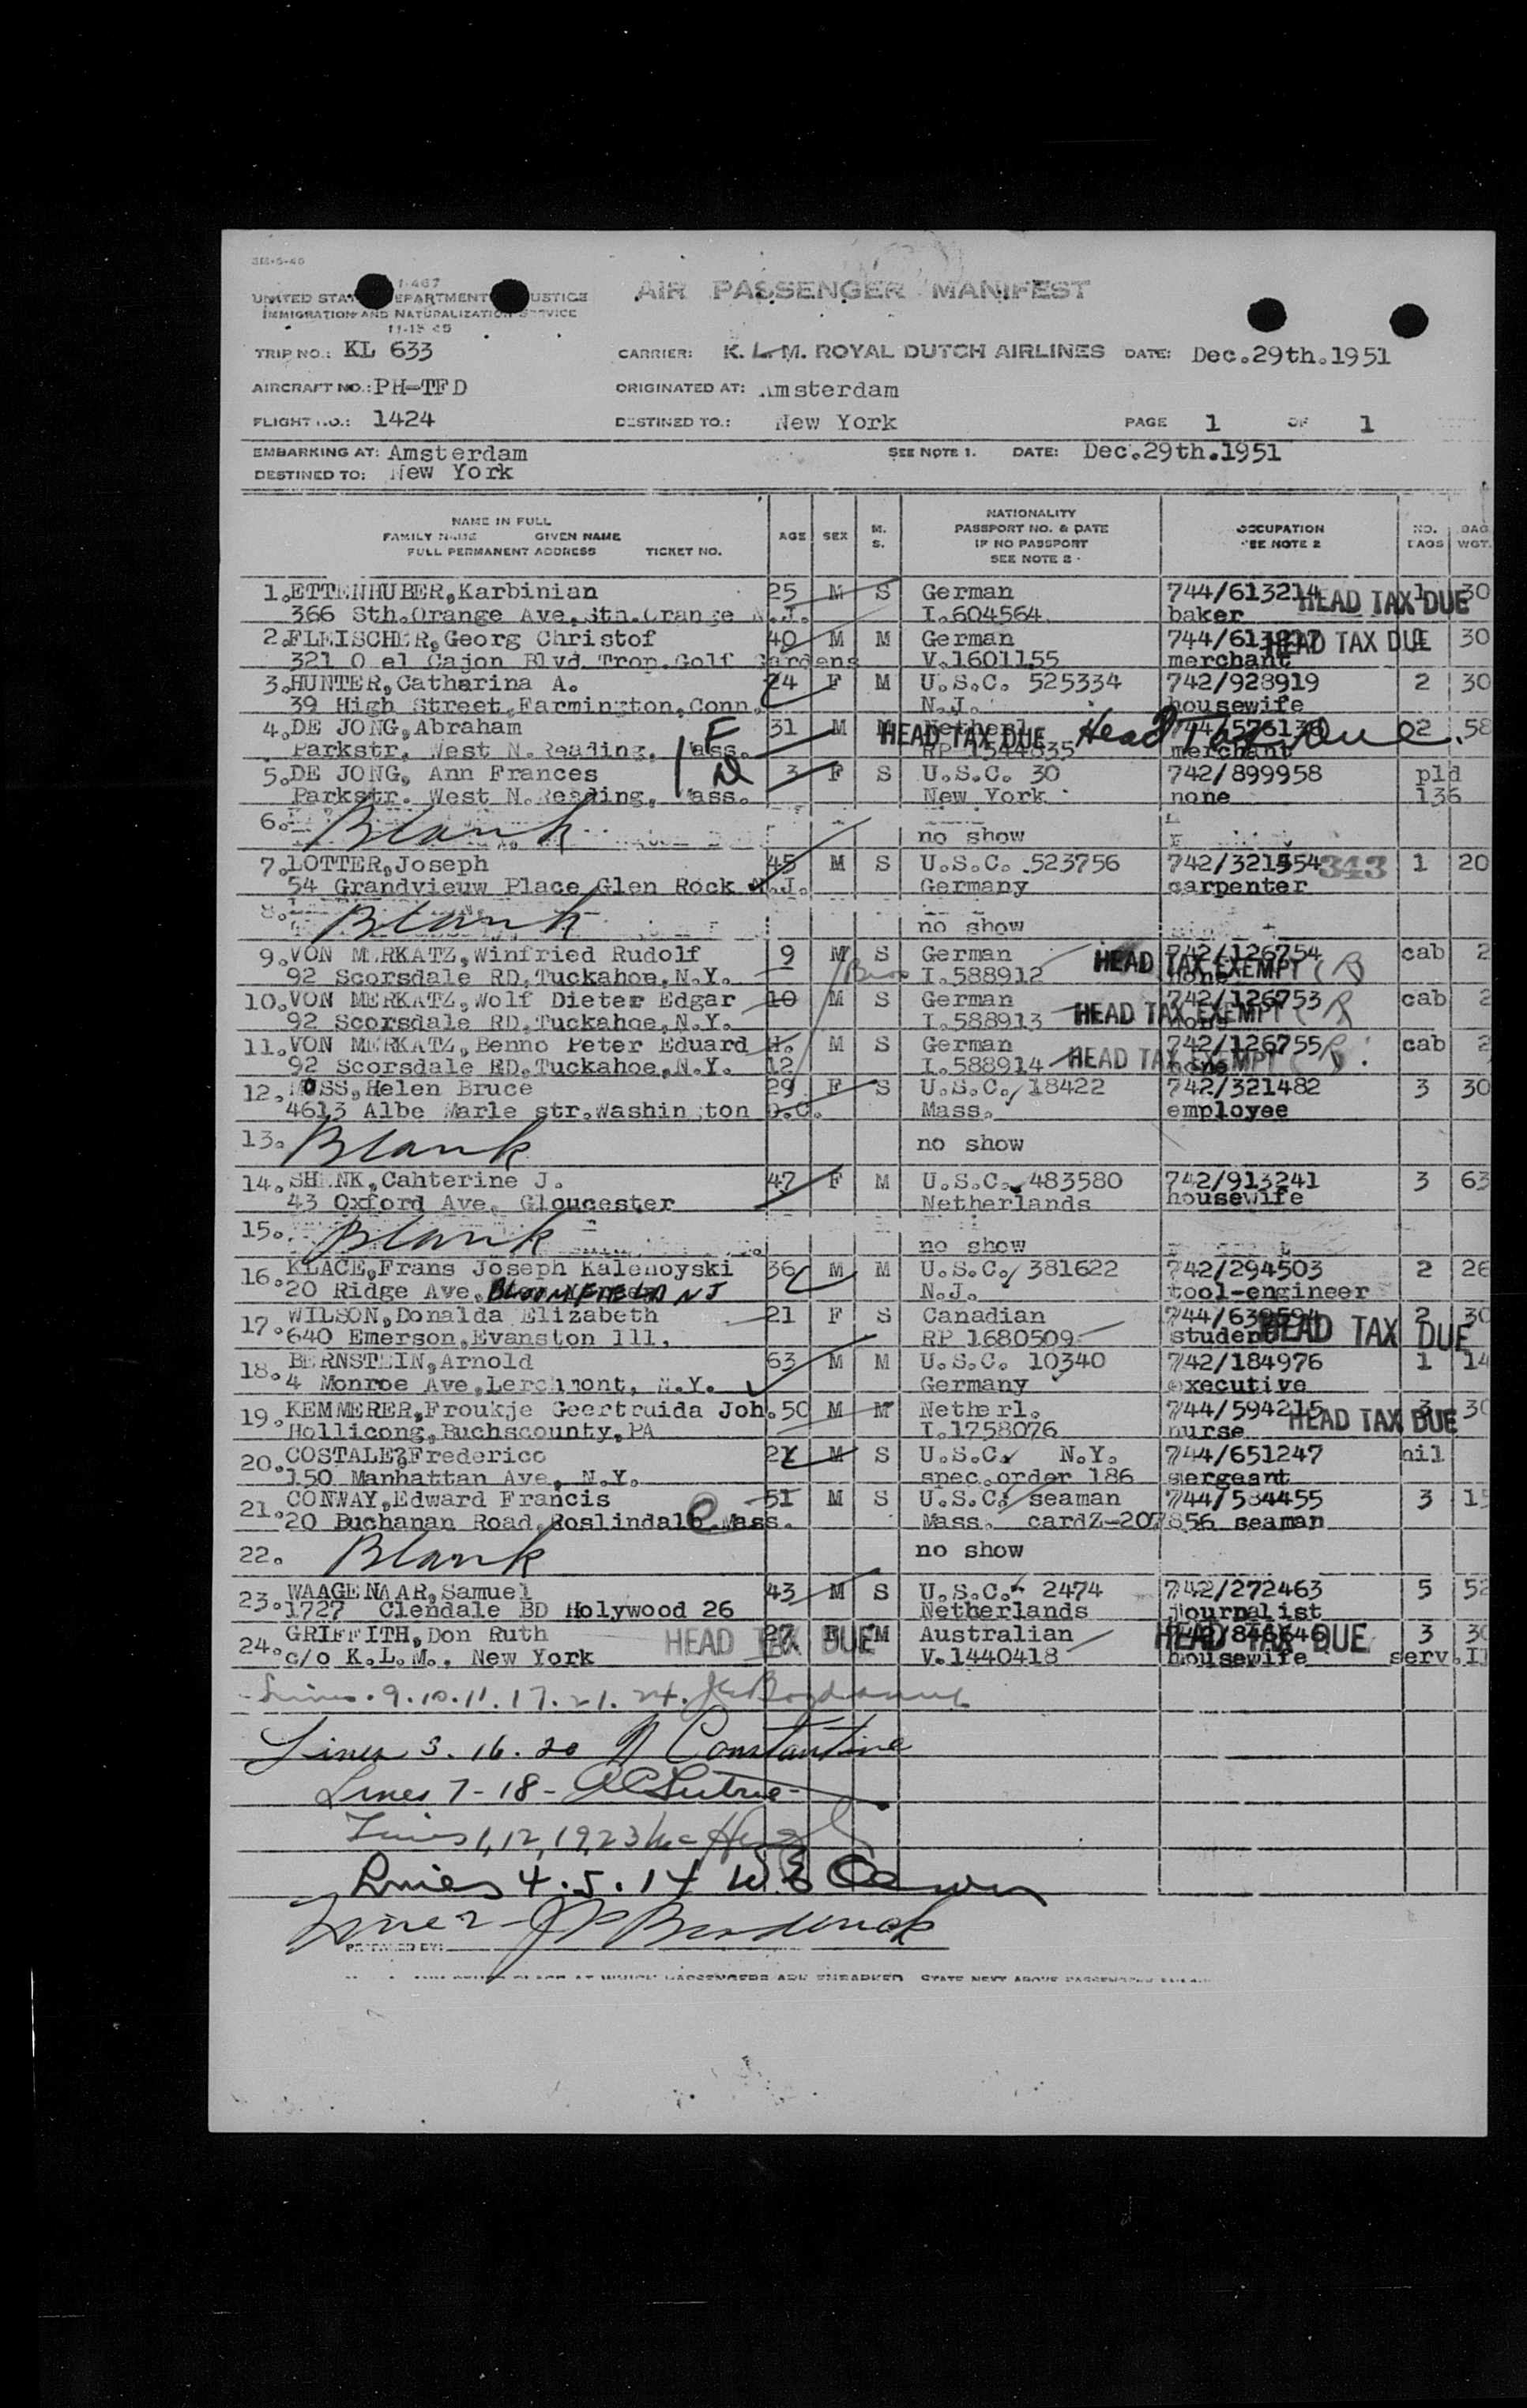 AIR PASSENGER MANIFEST
IMMIGRATION AND NATURALIZATION SERVICE
TRIP NO.: KL 633 CARRIER: K. L. M. ROYAL DUTCH AIRLINES DATE: Dec.29th.1951
AIRCRAFT NO.: PH-TFD ORIGINATED AT: Amsterdam
FLIGHT NO.: 1424 DESTINED TO.: New York PAGE 1 OF 1
EMBARKING AT: Amsterdam SEE NOTE 1. DATE: Dec.29th.1951
DESTINED TO: New York
NAME IN FULL
FAMILY NAME GIVEN NAME
FULL PERMANENT ADDRESS TICKET NO.
AGE SEX M. S.
NATIONALITY
PASSPORT NO. & DATE
IF NO PASSPORT
SEE NOTE 2
OCCUPATION
SEE NOTE 2
NO. BAGS BAG WGT.
1. ETTENHUBER, Karbinian 25 M S German 744/613214 1 30
366 Sth.Orange Ave, Sth.Orange N.J. I.604564 baker HEAD TAX DUE
2. FLEISCHER, Georg Christof 40 M M German HEAD TAX DUE 30
321 O el Cajon Blvd Trop.Golf Gardens V.1601155 merchant
3. HUNTER, Catharina A. 24 F M U.S.C. 525334 742/928919 2 30
39 High Street, Farmington, Conn. N.J. housewife
4. DE JONG, Abraham F 31 M M Netherl. HEAD TAX DUE Head Tax Due 2 58
Parkstr. West N.Reading, Mass. merchant
5. DE JONG, Ann Frances 3 F S U.S.C. 30 742/899958 pld
Parkstr. West N.Reading, Mass. New York none 136
6. Blank no show
7. LOTTER, Joseph 45 M S U.S.C. 523756 343 1 20
54 Grandvieuw Place Glen Rock N.J. Germany carpenter
8. Blank no show
9. VON MERKATZ, Winfried Rudolf 9 M S German 742/126754 cab 2
92 Scorsdale RD, Tuckahoe, N.Y. I.588912 none HEAD TAX EXEMPT
10. VON MERKATZ, Wolf Dieter Edgar 10 M S German 742/126753 cab 2
92 Scorsdale RD, Tuckahoe, N.Y. I.588913 none HEAD TAX EXEMPT
11. VON MERKATZ, Benno Peter Eduard H. M S German 742/126755 cab 2
92 Scorsdale RD, Tuckahoe, N.Y. 12 I.588914 none HEAD TAX EXEMPT
12. MOSS, Helen Bruce 29 F S U.S.C. 18422 742/321482 3 30
4613 Albe Marle str.Washington D.C. Mass. employee
13. Blank no show
14. SHENK, Cahterine J. 47 F M U.S.C. 483580 742/913241 3 63
43 Oxford Ave. Gloucester Netherlands housewife
15. Blank no show
16. KLACE, Frans Joseph Kalenoyski 36 M M U.S.C. 381622 742/294503 2 26
20 Ridge Ave, BLOOMFIELD NJ N.J. tool-engineer
17. WILSON, Donalda Elizabeth 21 F S Canadian 2 30
640 Emerson, Evanston Ill. RP 1680509 student HEAD TAX DUE
18. BERNSTEIN, Arnold 63 M M U.S.C. 10340 742/184976 1 14
4 Monroe Ave, Lerchmont, N.Y. Germany executive
19. KEMMERER, Froukje Geertruida Joh. 50 M M Netherl. 744/594215 3 30
Hollicong, Buchscounty, PA I.1758076 nurse HEAD TAX DUE
20. COSTALES, Frederico M S U.S.C. N.Y. 744/651247 nil
150 Manhattan Ave, N.Y. spec.order 186 sergeant
21. CONWAY, Edward Francis 51 M S U.S.C. seaman 744/584455 3 15
20 Buchanan Road, Roslindale Mass. Mass. cardZ-207856 seaman
22. Blank no show
23. WAAGENAAR, Samuel 43 M S U.S.C. 2474 742/272463 5 52
1727 Clendale BD Holywood 26 Netherlands journalist
24. GRIFFITH, Don Ruth HEAD TAX DUE 27 F M Australian HEAD TAX DUE 3 30
c/o K.L.M., New York V.1440418 housewife serv.
Lines . 9.10.11.17.21.24.
Lines 3.16.20 Constantine
Lines 7-18-
Lines 1, 12, 19, 23
Lines 4.5.14
Line 2
PREPARED BY: